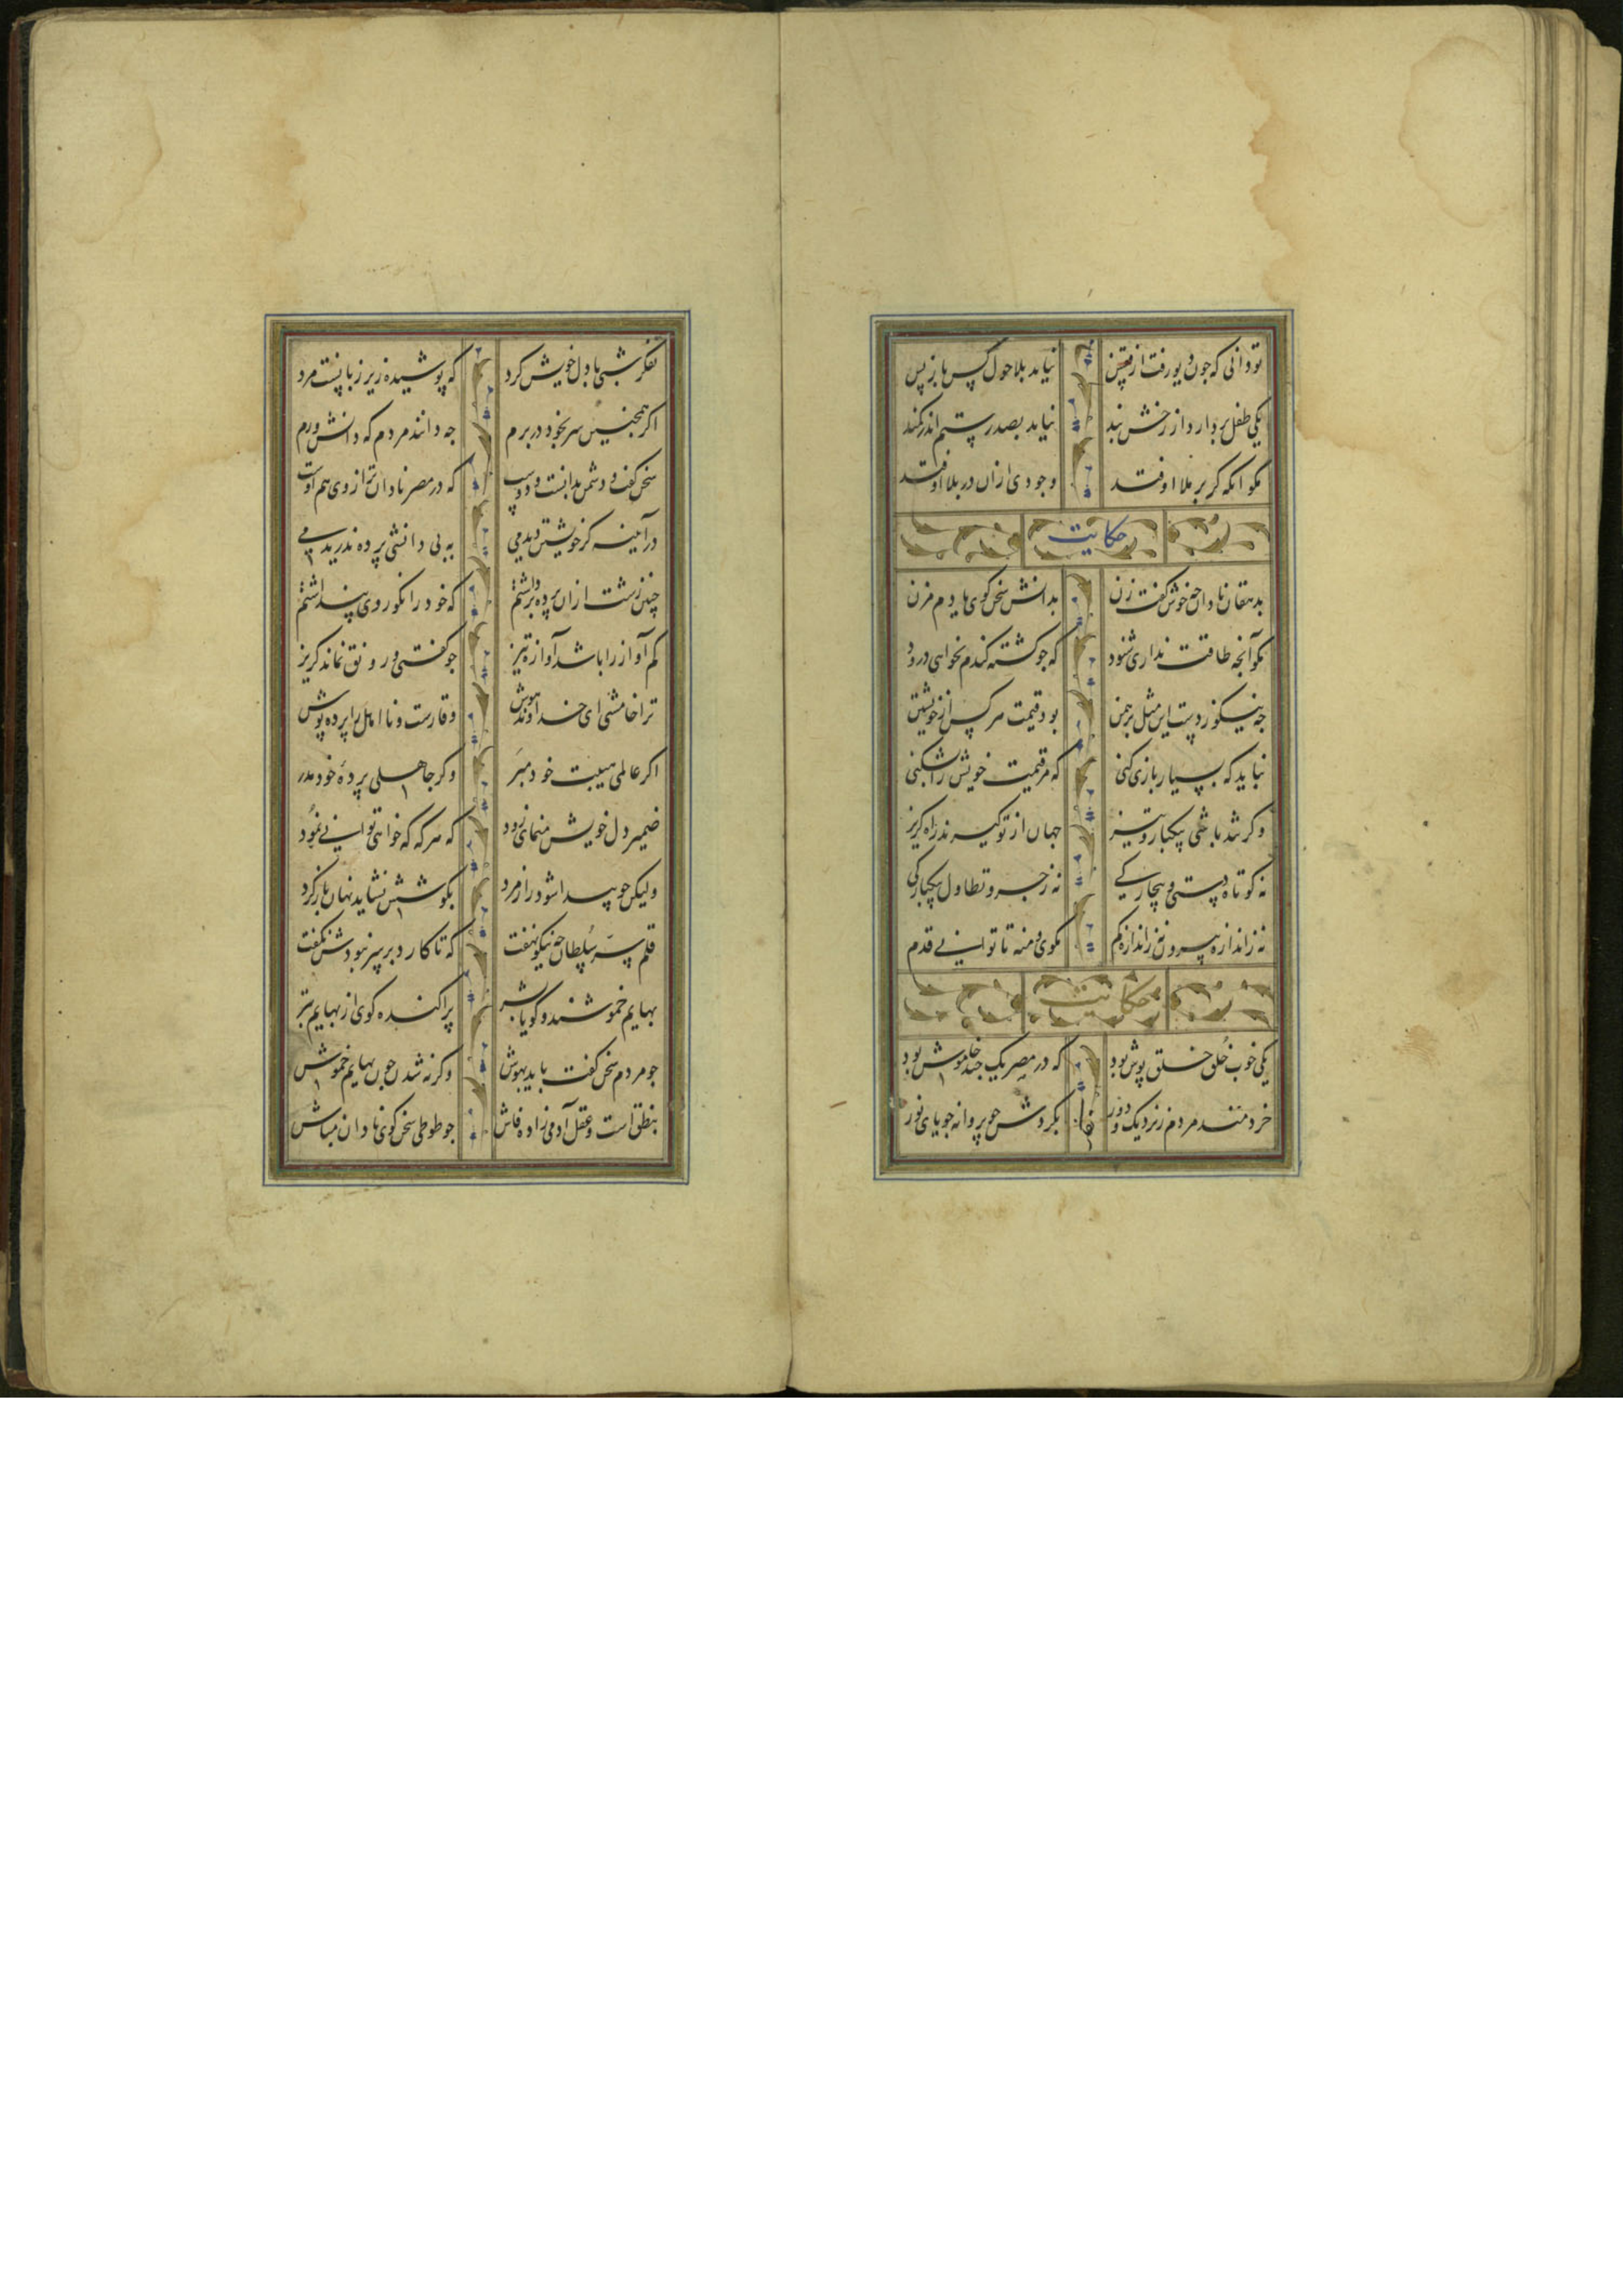 تو دانی که چون دیو رفت از قفس نیاید بلا حول کس باز پس
یکی طفل بردارد از رخش بند نیاید بصد رستم اندر کمند
مکو انکه کر بر ملا اوفتد وجودی ازان در بلا اوفتد
حکایت
بدهقان نادان چه خوش گفت زن بدانش سخن کوی یا دم مزن
مکو آنچه طاقت نداری شنود که جو کشته کندم نخواهی درود
چه نیکو زدست این مثل برهمن بود قیمت هر کس از خویشتن
نباید که بسیار بازی کنی که مر قیمت خویش را بشکنی
وکر تند باشی بیکبار و تیز جهان از تو گیرند راه کریز
نه کوتاه دستی و بیچارکی نه زجر و تطاول بیکبارکی
نه زاندازه بیرون نه زاندازه کم مکوی و منه تا توانی قدم
حکایت
یکی خوب خُلق خلق پوش بود که در مصر یک چند خاموش بود
خردمند مردم ز نزدیک و دور بکردش چو پروانه جویای نور
تفکر شبی با دل خویش کرد که پوشیده زیر زبانست مرد
اکر همچنین سر بخود در برم چه دانند مردم که دانش ورم
سخن کفت و دشمن بدانست و دوست که در مصر نادان تر از وی هم اوست
در آینه کر خویشتن دیدمی به بی دانشی پرده ندریدمی
چنین زشت ازان پرده برداشتم که خود را نکوروی پنداشتم
کم آواز را باشد آوازه تیز چو کفتی و رونق نماند کریز
ترا خامشی ای خداوند هوش وقارست و نا اهل را پرده پوش
اکر عالمی هیبت خود مبَر وکر جاهلی پردهٔ خود مدر
ضمیر دل خویش منمای زود که هر که که خواهی توانی نمُود
ولیکن چو پیدا شود راز مرد بکوشش نشاید نهان باز کرد
قلم سرّ سُلطان چه نیکو نهفت که تا کارد بر سر نبودش نکفت
بهایم خموشند و کویا بشر پراکنده کوی از بهایم بتر
چو مردم سخن کفت باید بهوش وکر نه شدن چون بهایم خموش
بنطق است و عقل آدمی زاده فاش چو طوطی سخن کوی نادان مباش